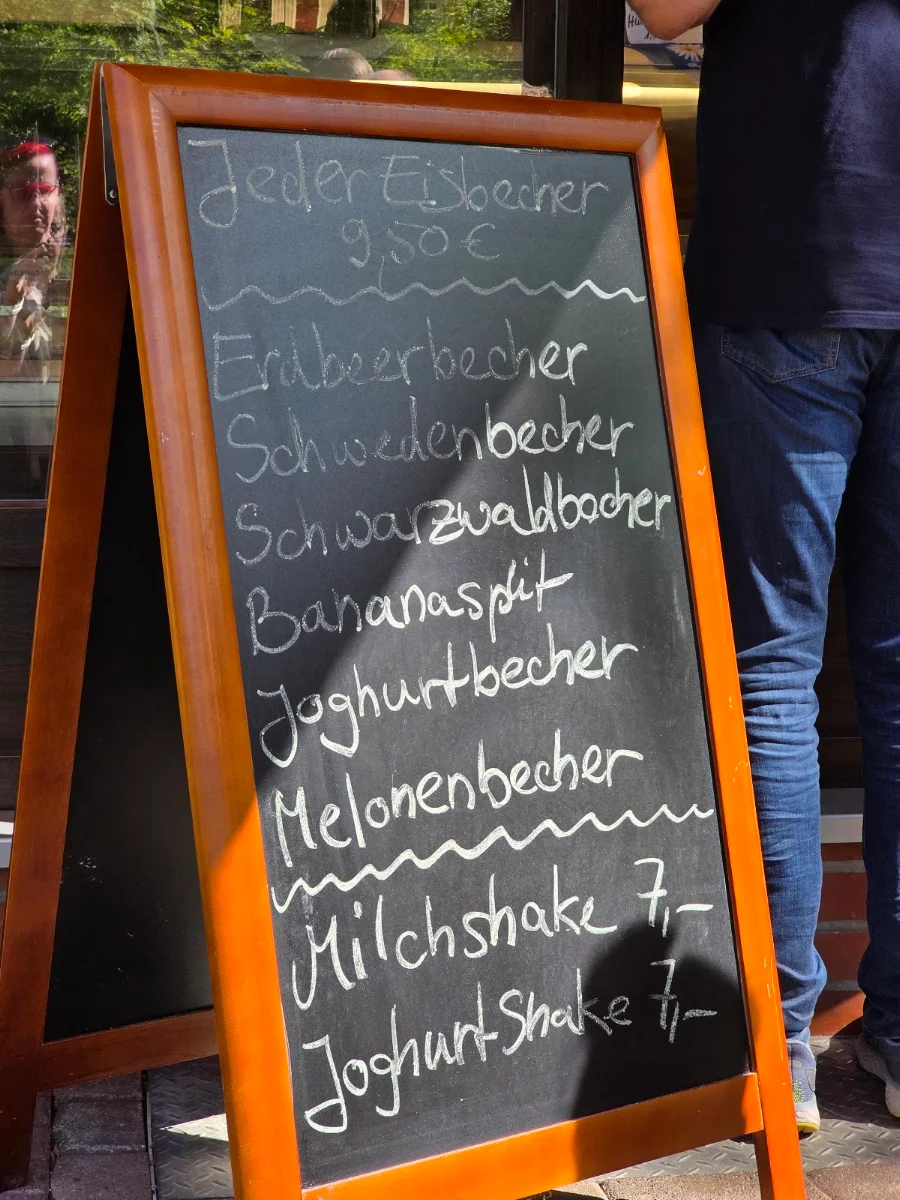 Jeder Eisbecher
9,50 €
Erdbeerbecher
Schwedenbecher
Schwarzwaldbecher
Bananasplit
Joghurtbecher
Melonenbecher
Milchshake 7,-
Joghurt-Shake 7,-